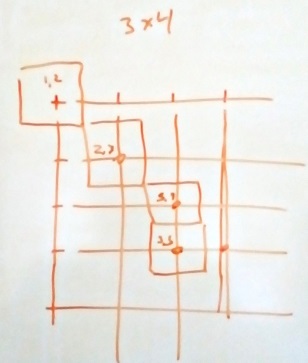 3×4
1,2
2,3
3,3